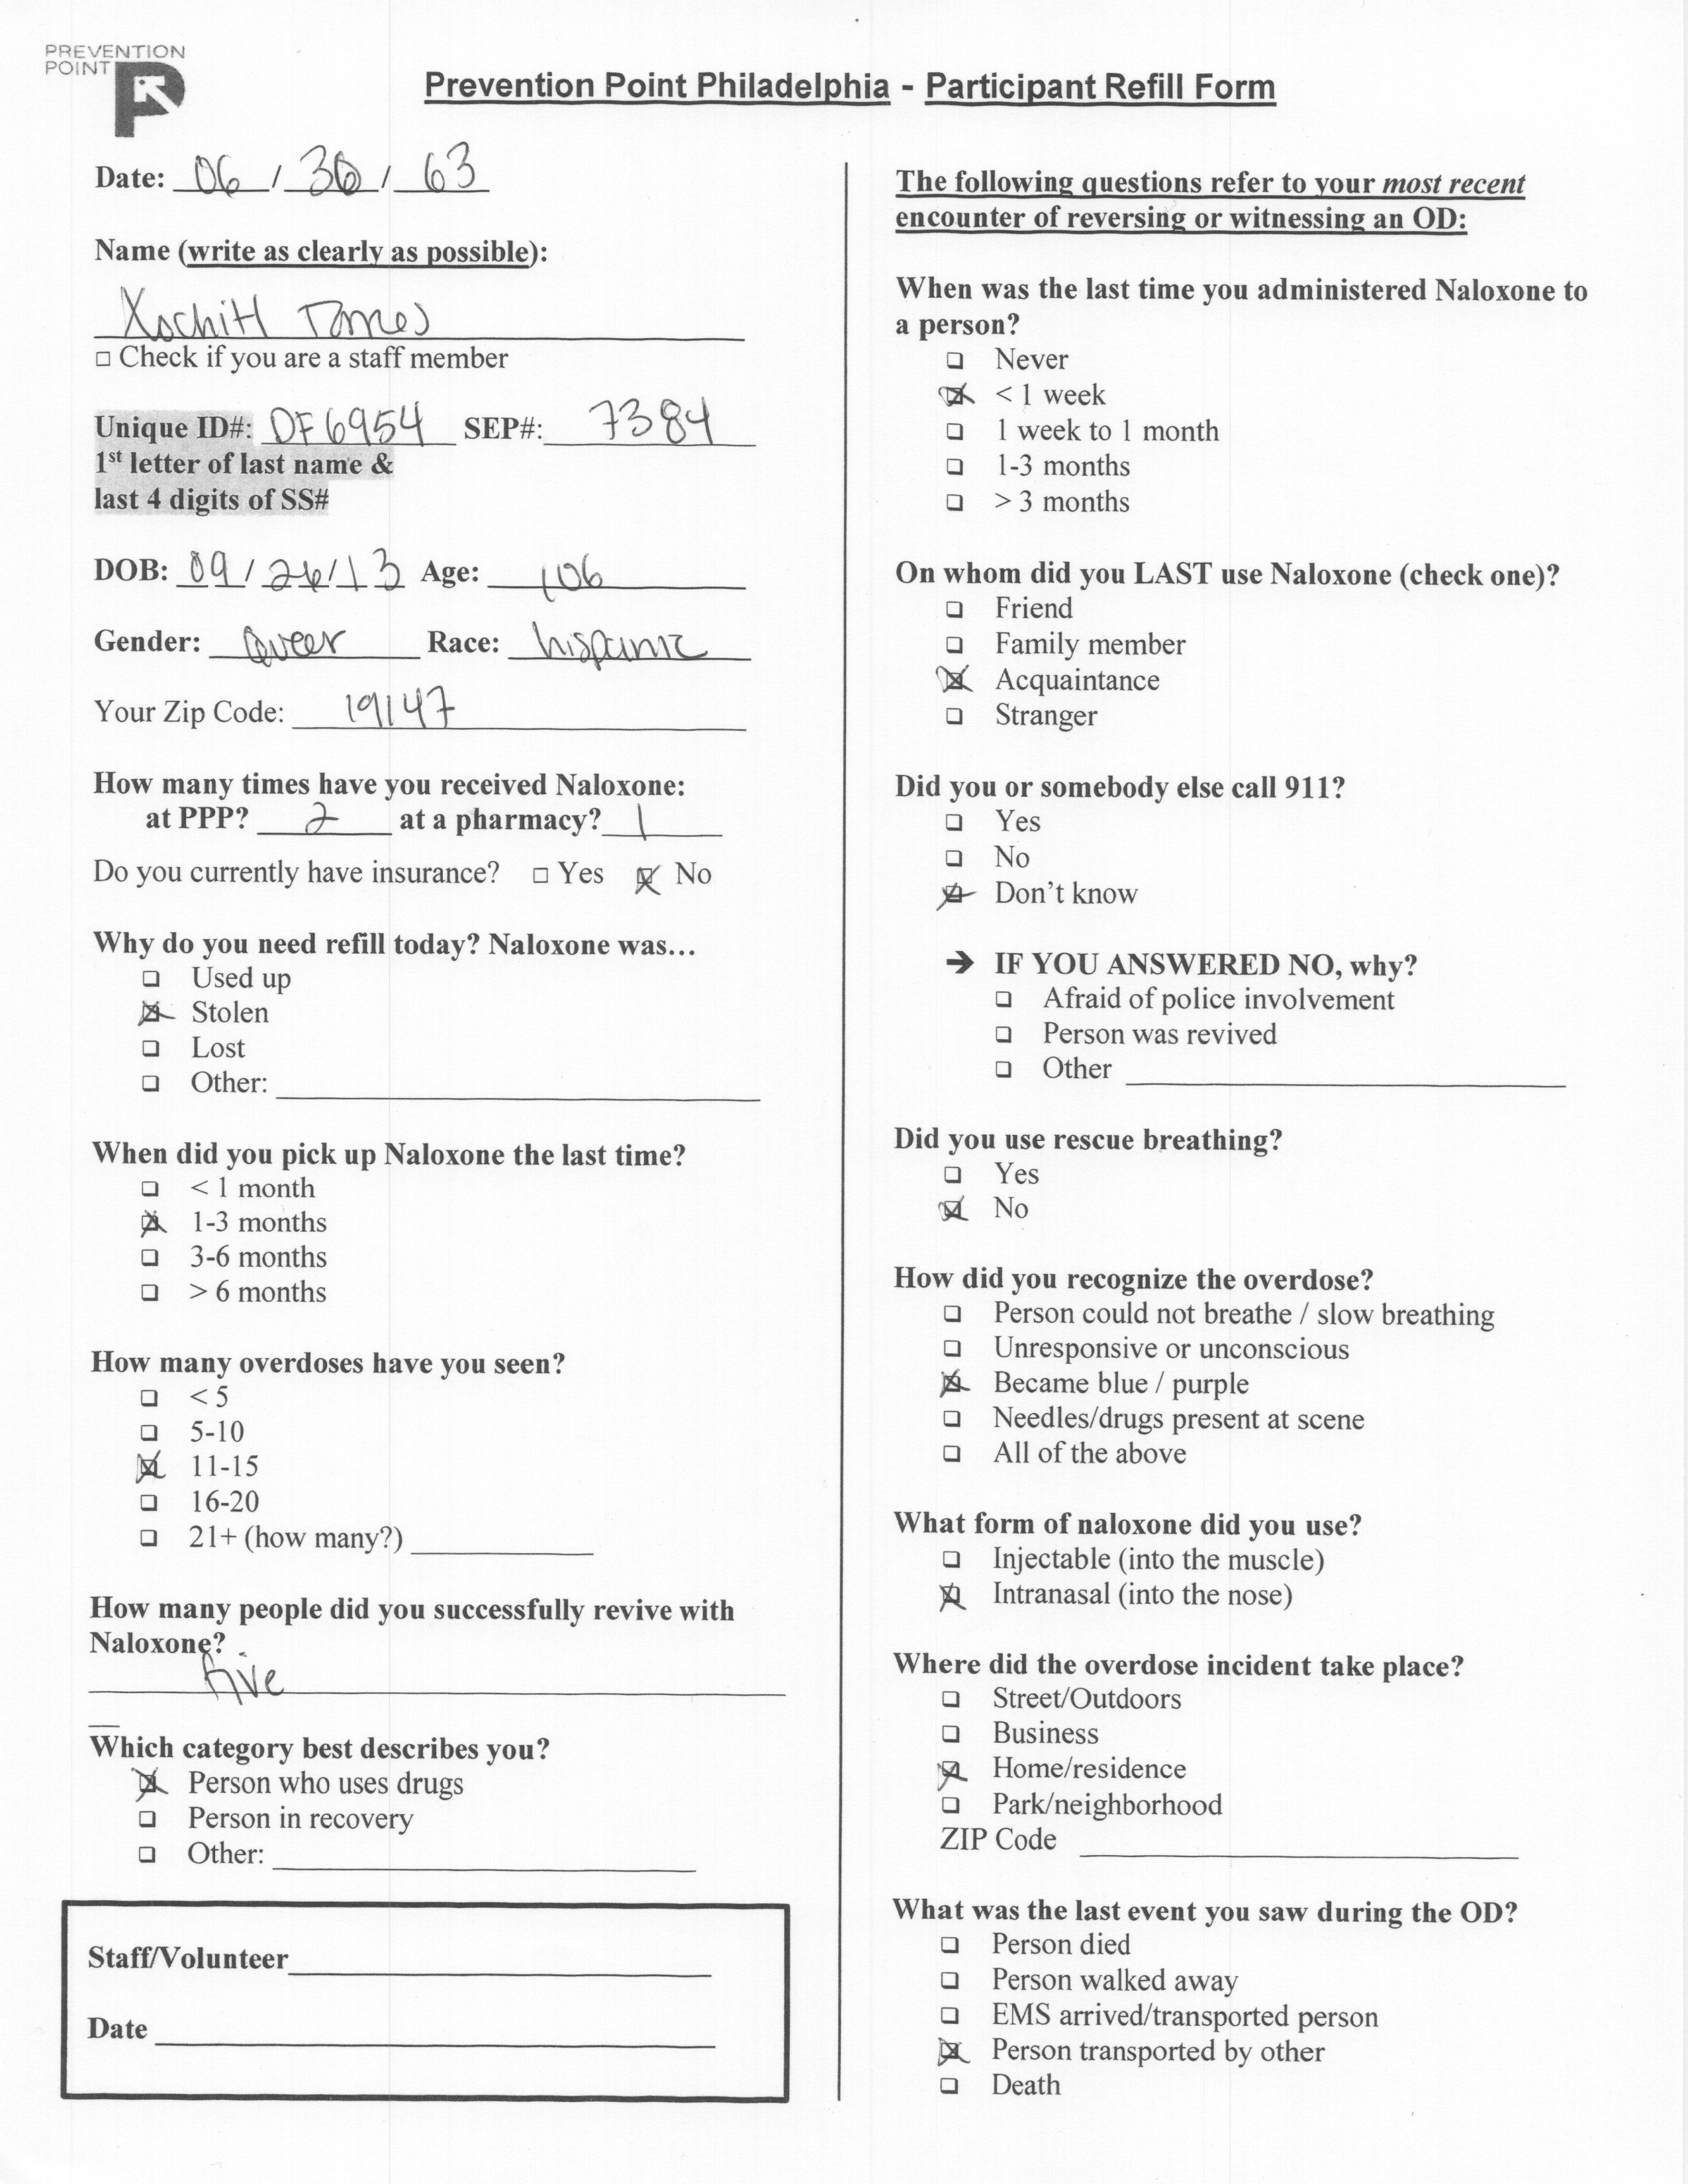 PREVENTION
POINT
Prevention Point Philadelphia - Participant Refill Form
Date: 06 / 30 / 63
Name (write as clearly as possible):
Xochitl Torres
□ Check if you are a staff member
Unique ID#: DF6954 SEP#: 7384
1st letter of last name &
last 4 digits of SS#
DOB: 09/26/13 Age: 106
Gender: Queer Race: hispanic
Your Zip Code: 19147
How many times have you received Naloxone:
at PPP? 2 at a pharmacy? 1
Do you currently have insurance? □ Yes ☒ No
Why do you need refill today? Naloxone was...
□ Used up
☒ Stolen
□ Lost
□ Other:
When did you pick up Naloxone the last time?
□ < 1 month
☒ 1-3 months
□ 3-6 months
□ > 6 months
How many overdoses have you seen?
□ < 5
□ 5-10
☒ 11-15
□ 16-20
□ 21+ (how many?)
How many people did you successfully revive with
Naloxone?
five
Which category best describes you?
☒ Person who uses drugs
□ Person in recovery
□ Other:
Staff/Volunteer
Date
The following questions refer to your most recent
encounter of reversing or witnessing an OD:
When was the last time you administered Naloxone to
a person?
□ Never
☒ < 1 week
□ 1 week to 1 month
□ 1-3 months
□ > 3 months
On whom did you LAST use Naloxone (check one)?
□ Friend
□ Family member
☒ Acquaintance
□ Stranger
Did you or somebody else call 911?
□ Yes
□ No
☒ Don't know
➔ IF YOU ANSWERED NO, why?
□ Afraid of police involvement
□ Person was revived
□ Other
Did you use rescue breathing?
□ Yes
☒ No
How did you recognize the overdose?
□ Person could not breathe / slow breathing
□ Unresponsive or unconscious
☒ Became blue / purple
□ Needles/drugs present at scene
□ All of the above
What form of naloxone did you use?
□ Injectable (into the muscle)
☒ Intranasal (into the nose)
Where did the overdose incident take place?
□ Street/Outdoors
□ Business
☒ Home/residence
□ Park/neighborhood
ZIP Code
What was the last event you saw during the OD?
□ Person died
□ Person walked away
□ EMS arrived/transported person
☒ Person transported by other
□ Death